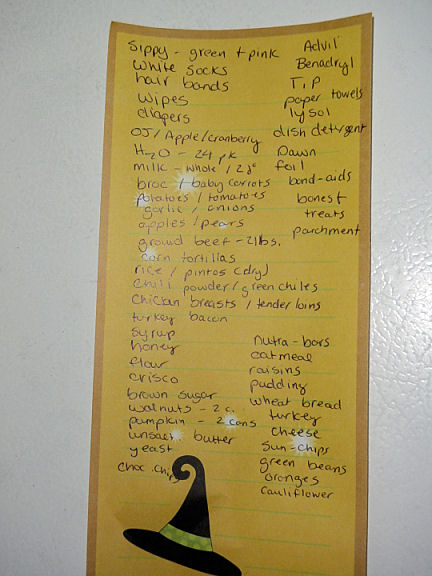 Sippy - green + pink
White socks
hair bands
wipes
diapers
OJ/Apple/cranberry
H2O - 24 pk
milk - whole / 2%
broc / baby carrots
potatoes / tomatoes
garlic / onions
apples / pears
ground beef - 2 lbs.
corn tortillas
rice / pintos (dry)
Chili powder/green chiles
Chicken breasts / tenderloins
turkey bacon
syrup
honey
flour
crisco
brown sugar
walnuts - 2 c.
pumpkin - 2 cans
unsalt butter
yeast
choc. chips
Advil
Benadryl
T.P
paper towels
lysol
dish detergent
Dawn
foil
band-aids
bones +
treats
parchment
nutra-bars
oatmeal
raisins
pudding
wheat bread
turkey
cheese
sun-chips
green beans
oranges
cauliflower